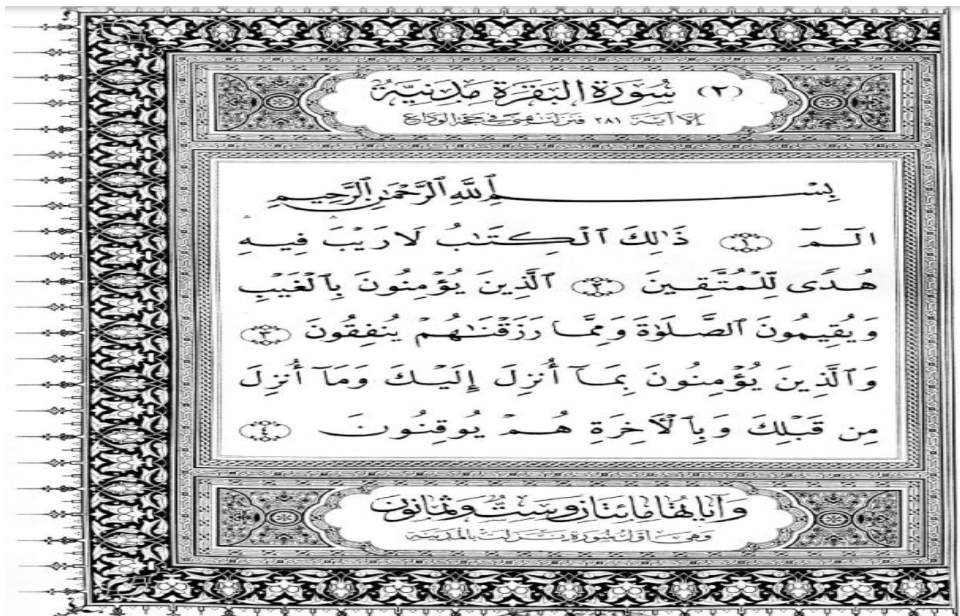 (٢) سُورَةُ الْبَقَرَةِ مَدَنِيَّة
إلا آية ٢٨١ فنزلت بمنى في حجة الوداع
بِسْمِ اللَّهِ الرَّحْمَٰنِ الرَّحِيمِ
الٓمٓ ١ ذَٰلِكَ ٱلْكِتَٰبُ لَا رَيْبَ فِيهِ
هُدًى لِّلْمُتَّقِينَ ٢ ٱلَّذِينَ يُؤْمِنُونَ بِٱلْغَيْبِ
وَيُقِيمُونَ ٱلصَّلَوٰةَ وَمِمَّا رَزَقْنَٰهُمْ يُنفِقُونَ ٣
وَٱلَّذِينَ يُؤْمِنُونَ بِمَآ أُنزِلَ إِلَيْكَ وَمَآ أُنزِلَ
مِن قَبْلِكَ وَبِٱلْأَخِرَةِ هُمْ يُوقِنُونَ ٤
وَآيَاتُهَا مِائَتَانِ وَسِتٌّ وَثَمَانُونَ
وهي أول سورة نزلت بالمدينة